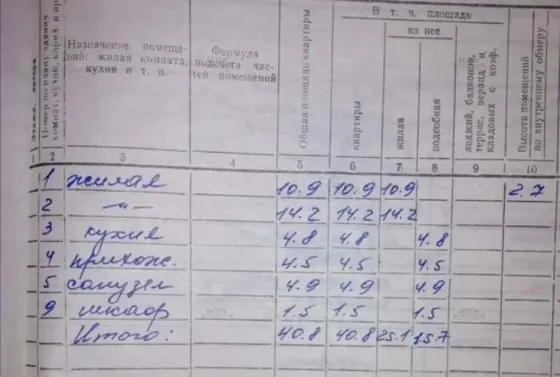 В т. ч. площадь
из нее
Назначение помеще-
ний: жилая комната,
кухня и т. п.
Формула
подсчета час-
тей помещений
Общая площадь квартиры
квартиры
жилая
подсобная
лоджий, балконов,
террас, веранд и
кладовых с коэф.
Высота помещений
по внутреннему обмеру
2 3 4 5 6 7 8 9 10
1 жилая 10.9 10.9 10.9 2.7
2 -"- 14.2 14.2 14.2
3 кухня 4.8 4.8 4.8
4 прихож. 4.5 4.5 4.5
5 санузел 4.9 4.9 4.9
9 шкаф 1.5 1.5 1.5
Итого: 40.8 40.8 25.1 15.7